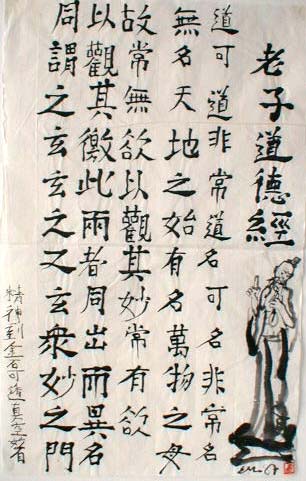 老子道德經
道可道非常道名可名非常名
無名天地之始有名萬物之母
故常無欲以觀其妙常有欲
以觀其徼此兩者同出而異名
同謂之玄玄之又玄衆妙之門
精神到金石可透真空妙有